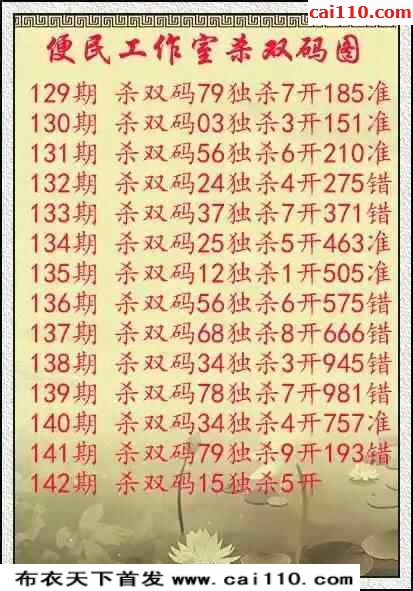 cai110.com
便民工作室杀双码图
129期 杀双码79独杀7开185准
130期 杀双码03独杀3开151准
131期 杀双码56独杀6开210准
132期 杀双码24独杀4开275错
133期 杀双码37独杀7开371错
134期 杀双码25独杀5开463准
135期 杀双码12独杀1开505准
136期 杀双码56独杀6开575错
137期 杀双码68独杀8开666错
138期 杀双码34独杀3开945错
139期 杀双码78独杀7开981错
140期 杀双码34独杀4开757准
141期 杀双码79独杀9开193错
142期 杀双码15独杀5开
布衣天下首发 www.cai110.com